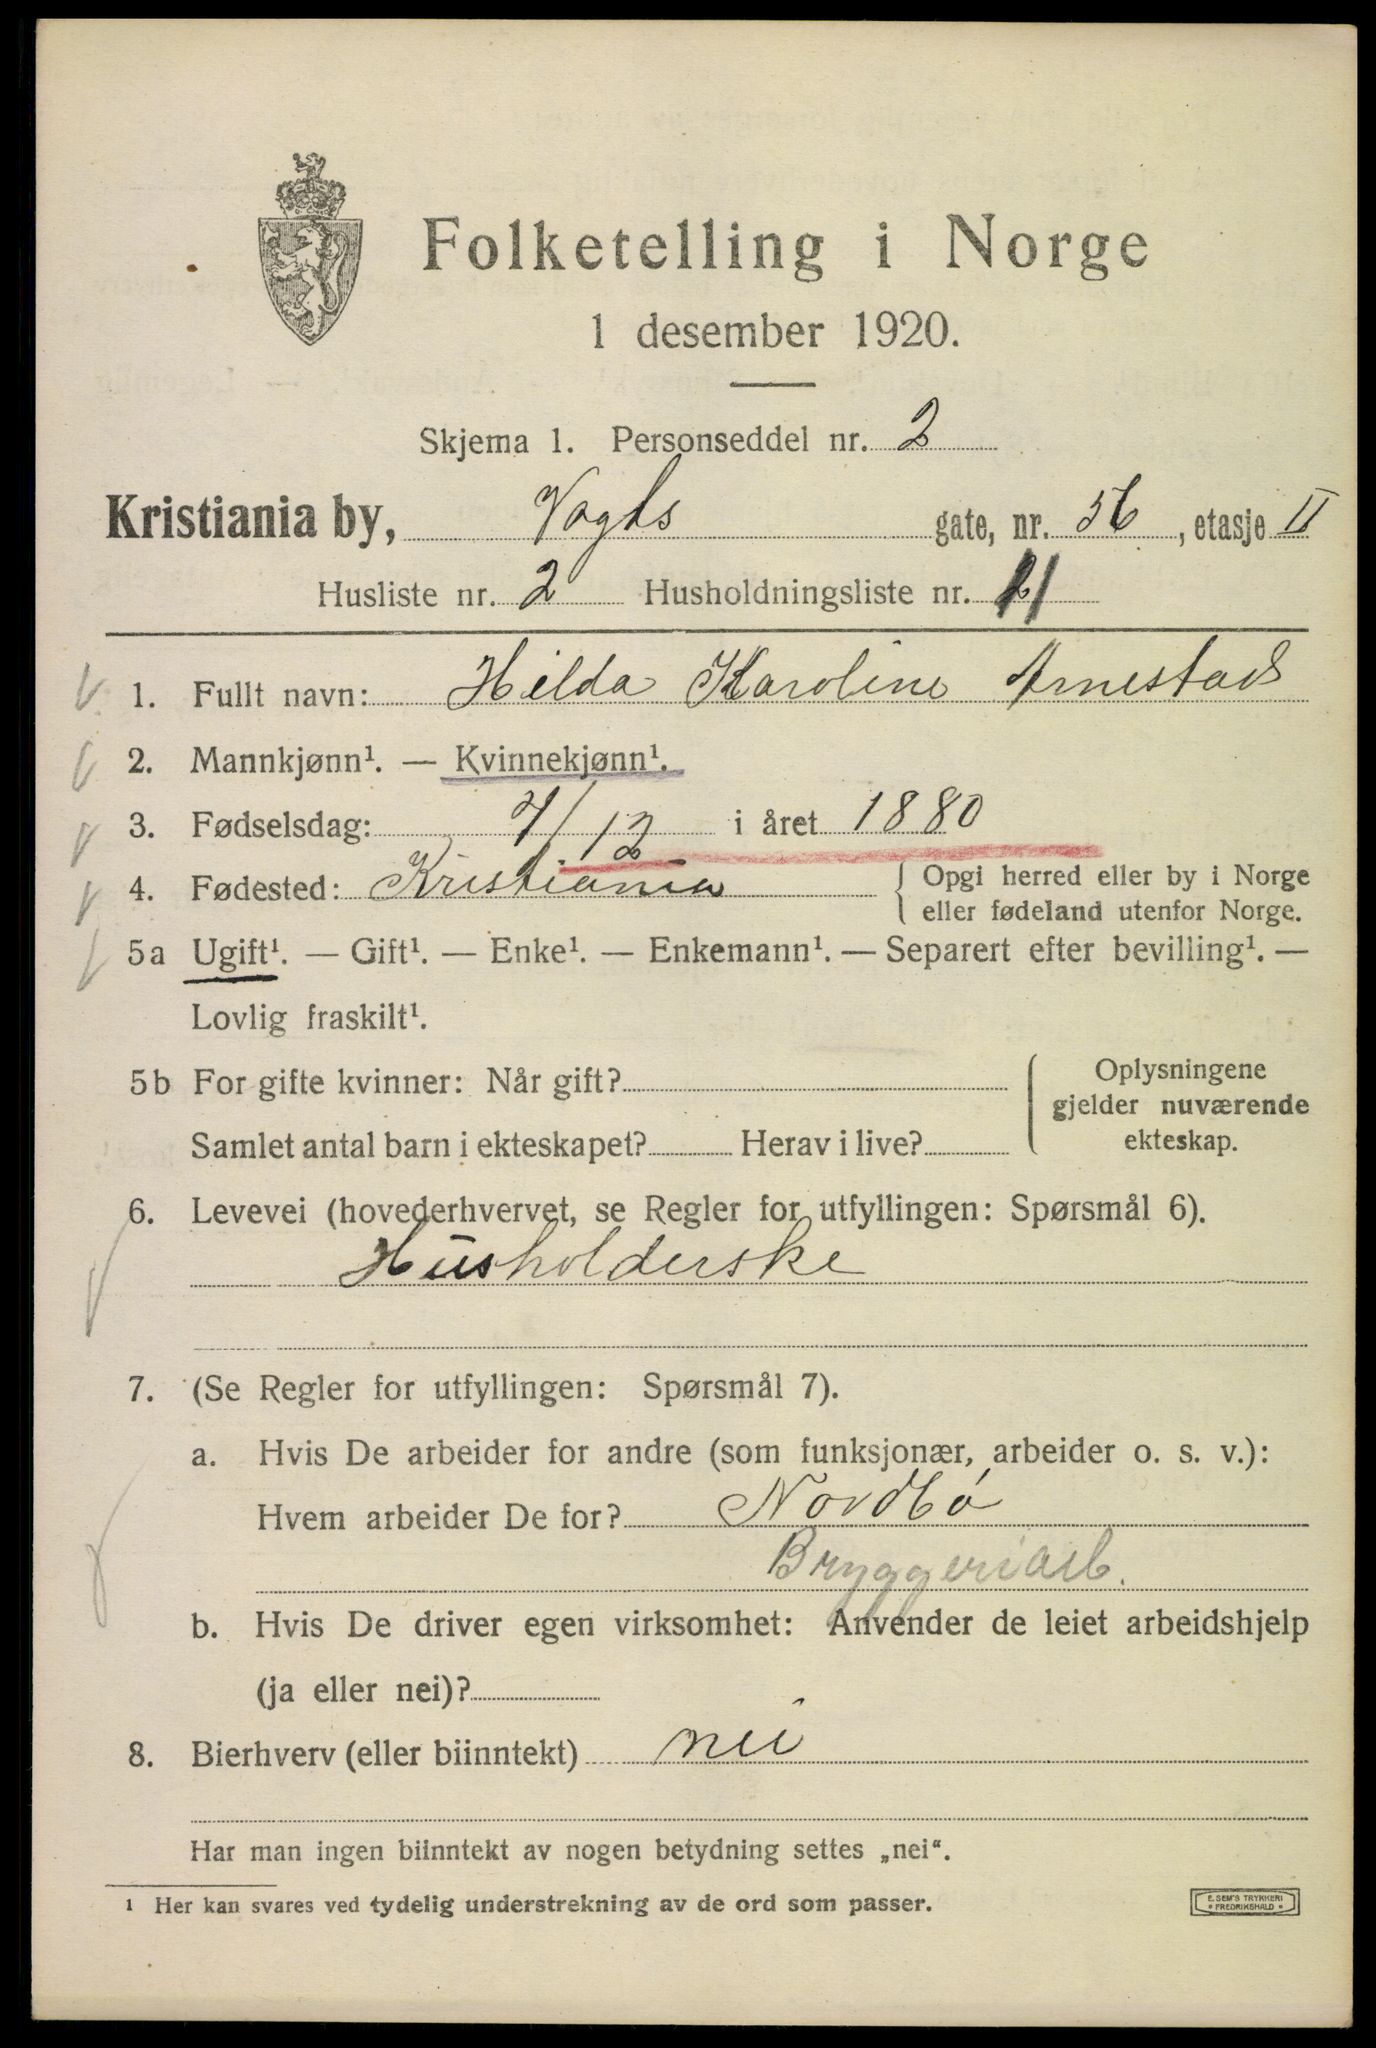 Folketelling i Norge
1 desember 1920.
Skjema 1. Personseddel nr. 2
Kristiania by, Vogts gate, nr. 56, etasje II
Husliste nr. 2 Husholdningsliste nr.
1. Fullt navn: Hilda Karoline Arnestad
2. Mannkjønn¹. — Kvinnekjønn¹.
3. Fødselsdag: 7/12 i året 1880
4. Fødested: Kristiania { Opgi herred eller by i Norge
eller fødeland utenfor Norge.
5a Ugift¹. — Gift¹. — Enke¹. — Enkemann¹. — Separert efter bevilling¹. —
Lovlig fraskilt¹.
5b For gifte kvinner: Når gift?
Samlet antal barn i ekteskapet? Herav i live?
Oplysningene
gjelder nuværende
ekteskap.
6. Levevei (hovederhvervet, se Regler for utfyllingen: Spørsmål 6).
Husholderske
7. (Se Regler for utfyllingen: Spørsmål 7).
a. Hvis De arbeider for andre (som funksjonær, arbeider o. s. v.):
Hvem arbeider De for? Nordbó
Bryggeriarb.
b. Hvis De driver egen virksomhet: Anvender de leiet arbeidshjelp
(ja eller nei)?
8. Bierhverv (eller biinntekt) nei
Har man ingen biinntekt av nogen betydning settes „nei“.
1 Her kan svares ved tydelig understrekning av de ord som passer.
E. SEM'S TRYKKERI
* FREDRIKSHALD *